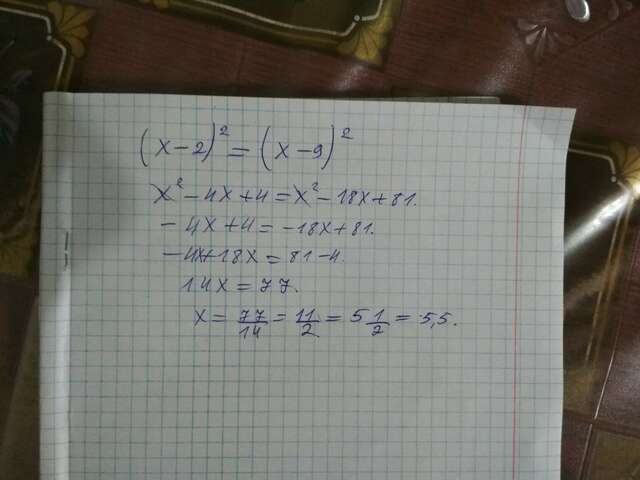 (x-2)² = (x-9)²
x² - 4x + 4 = x² - 18x + 81.
- 4x + 4 = -18x + 81.
- 4x + 18x = 81 - 4.
14x = 77.
x = 77/14 = 11/2 = 5 1/2 = 5,5.